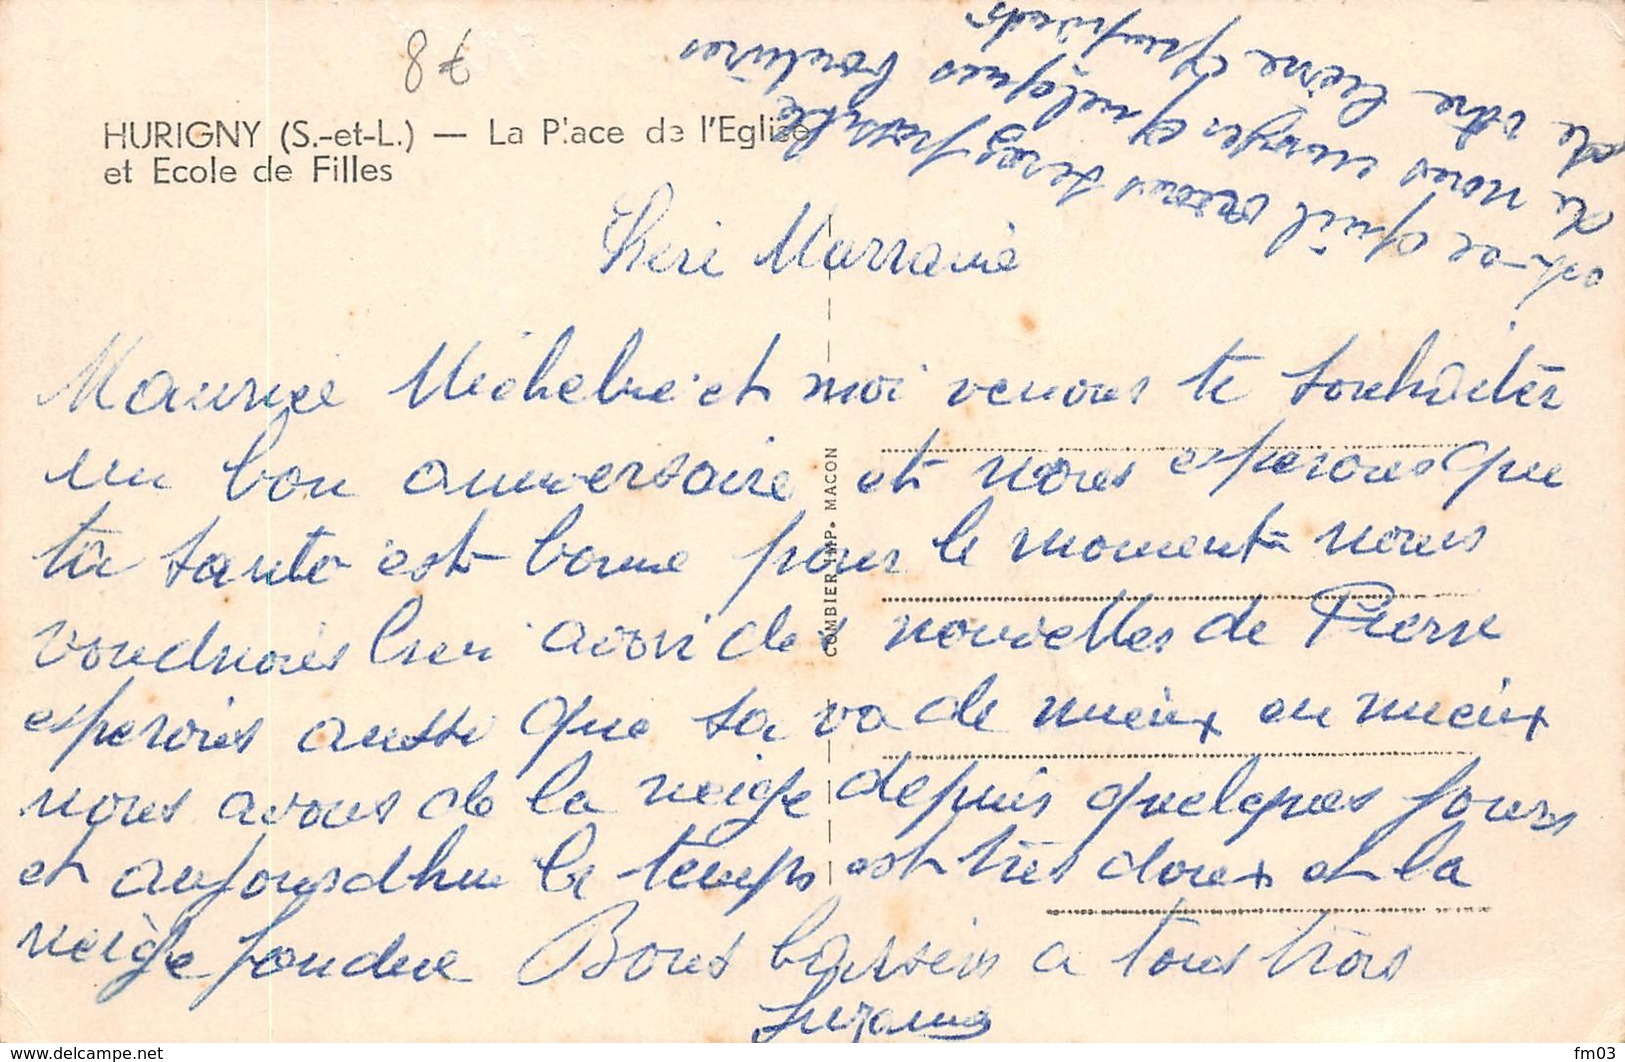 8€
HURIGNY (S.-et-L.) — La Place de l'Eglise
et Ecole de Filles
Cheri Marraine
Maurice Michelne et moi venons te souhaiter
un bon anniversaire et nous esperons que
ta sante est bonne pour le moment nous
voudrions bien avoir des nouvelles de Pierre
esperons aussi que sa va de mieux en mieux
nous avons de la neige depuis quelques jours
et aujourdhui le temps est très doux et la
neige fondue Bons baisers a tous trois
Suzanne
est-ce qu'il vous seras possible
de nous envoyer quelques boutures
de votre lierre
COMBIER IMP. MACON
www.delcampe.net
fm03